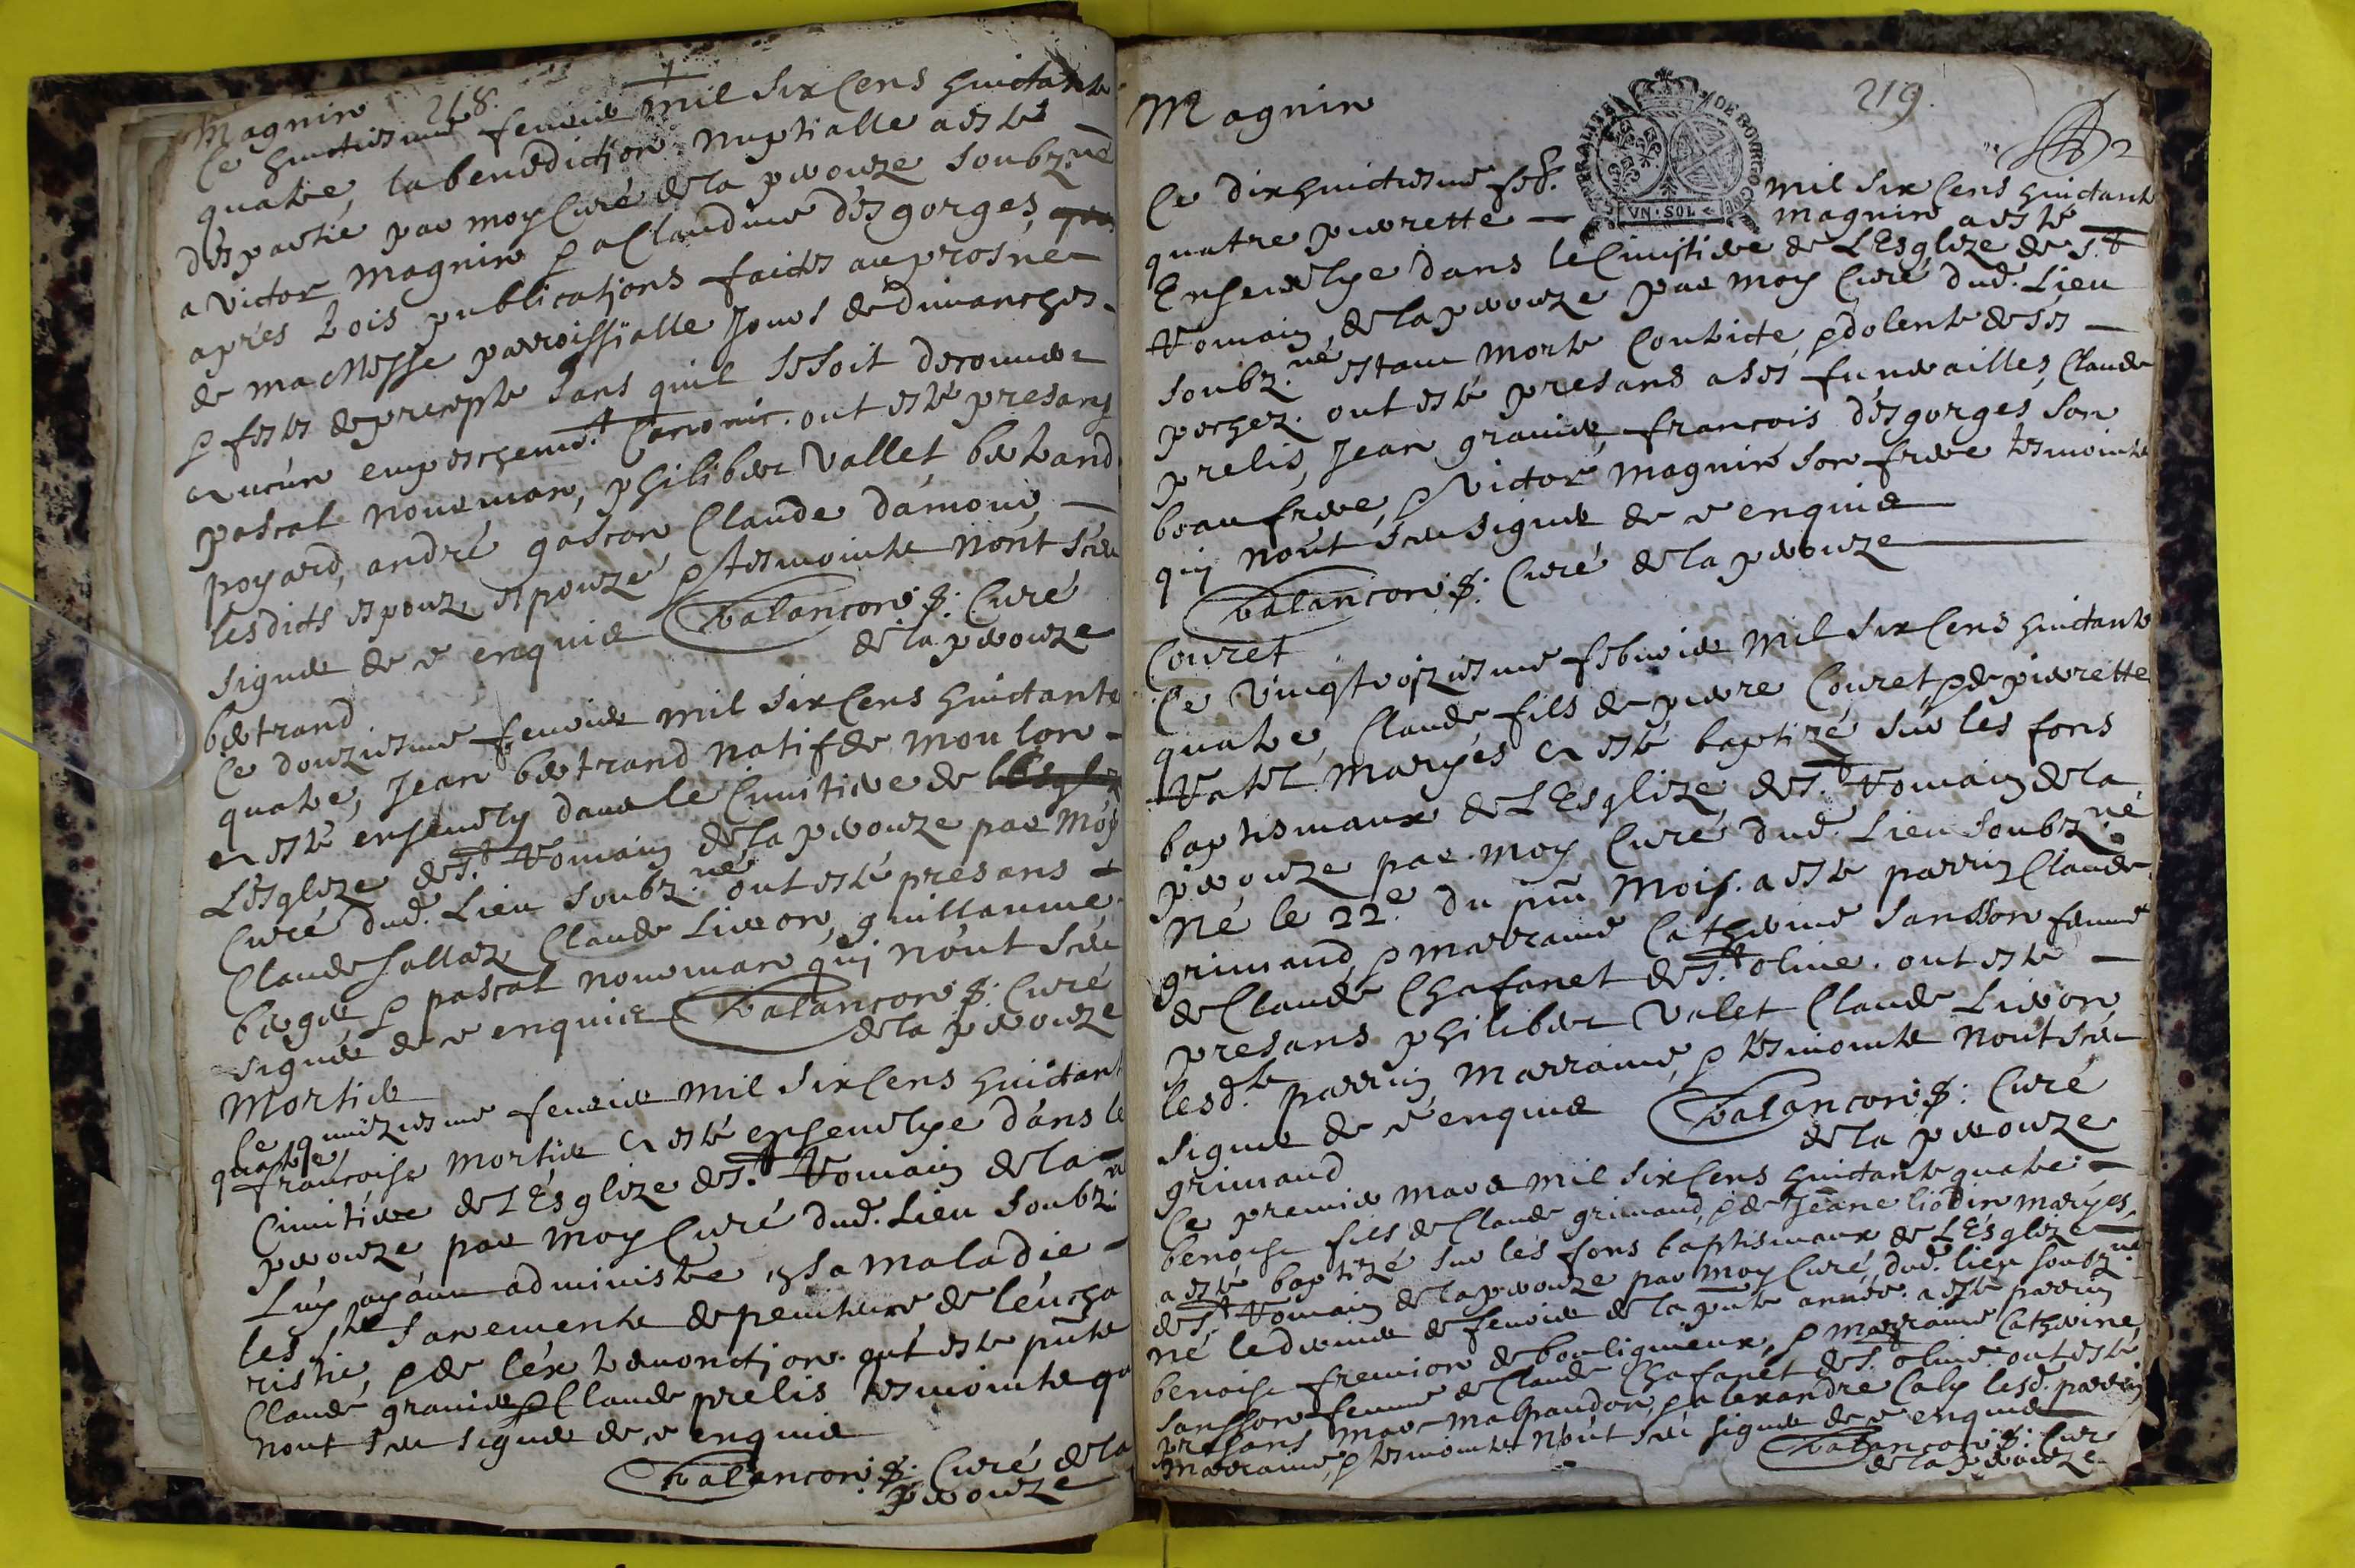 Magnin 218.
Ce huictiesme fevrier mil six Cens huictante
quatre, la benediction nuptialle a este
despartie par moy Curé de la perouze soubz.né
a victor magnin & a Claudine desgorges,
apres trois publications faictes au prosne
de ma Messe parroissialle Jours de dimanches
& festes de precepte sans quil se soit descouvert
aucun empeschemt. Canonic. ont esté presans
pascal nouveman, philiber Vallet bertrand
poyard, andré gascon Claude damour
lesdicts espoux, espouze, & tesmointz nont sceu
signer de ce enquis Balancon p: Curé
de la perouze
bertrand
Ce douziesme fevrier mil six Cens huictante
quatre, Jean bertrand natif de moulon
a esté ensevely dans le Cimitiere de
L'Esglize de St. Romain de la perouze par moy
Curé dud. Lieu soubz.né ont esté presans
Claude sallaz Claude Liveron, guillaume
berger & pascal nouveman qui nont sceu
signer de ce enquis Balancon p: Curé
de la perouze
Mortier
Ce quinziesme fevrier mil six Cens huictante
quatre,
francoise mortier a esté ensevelye dans le
Cimitiere de L'Esglize de St. Romain de la
perouze par moy Curé dud. Lieu soubz.né
Luy ayant administre en sa maladie
les sts Sacrements de penitence de leucha
ristie, & de lextremonction. ont este pnts
Claude gravier & Claude prelis tesmointz qui
nont sceu signer de ce enquis
Balancon p: Curé de la
perouze
Magnin 219.
GENERALITE DE BOURGOGNE
VN · SOL
Ce dix huictiesme feb. mil six Cens huictante
quatre pierrette — magnin a esté
Ensevelye dans le Cimitiere de L'Esglize de St.
Romain de la perouze par moy Curé dud. Lieu
soubz.né estant morte Contricte, & dolente de ses
pechez. ont esté presans a ses funerailles, Claude
prelis, Jean gravier, francois desgorges son
beaufrere, & victor magnin son frere tesmointz
qui nont sceu signer de ce enquis
Balancon p: Curé de la perouze
Couret
Ce Vingttroiziesme febvrier mil six Cens huictante
quatre, Claude fils de pierre Couret & de pierrette
Ratel maryés a esté baptizé sur les fons
baptismaux de L'Esglize de St. Romain de la
perouze par moy Curé dud. Lieu soubz.né
Né le 22e. du pnt Mois. a este parrin Claude
grimand & marraine Catherine Sansson femme
de Claude Chafanet de St. olive. ont este
presans philiber Valet Claude Liveron
lesd.ts parrin marraine, & tesmointz nont sceu
signer de ce enquis Balancon p: Curé
de la perouze
grimand
Ce premier mars mil six Cens huictante quatre
benoist fils de Claude grimand, & de Jeane liodin maryés
a esté baptizé sur les fons baptismaux de L'Esglize
de St. Romain de la perouze par moy Curé dud. lieu soubz.né
né le dernier de fevrier de la pnte année. a esté parrin
benoist fremion de bouligneux, & marraine Catherine
Sansson femme de Claude Chafanet de St. olive. ont esté
presans marc malhaudon, & alexandre Caly lesd. parrin
marraine, & tesmointz nont sceu signer de ce enquis
Balancon p: Curé
de la perouze